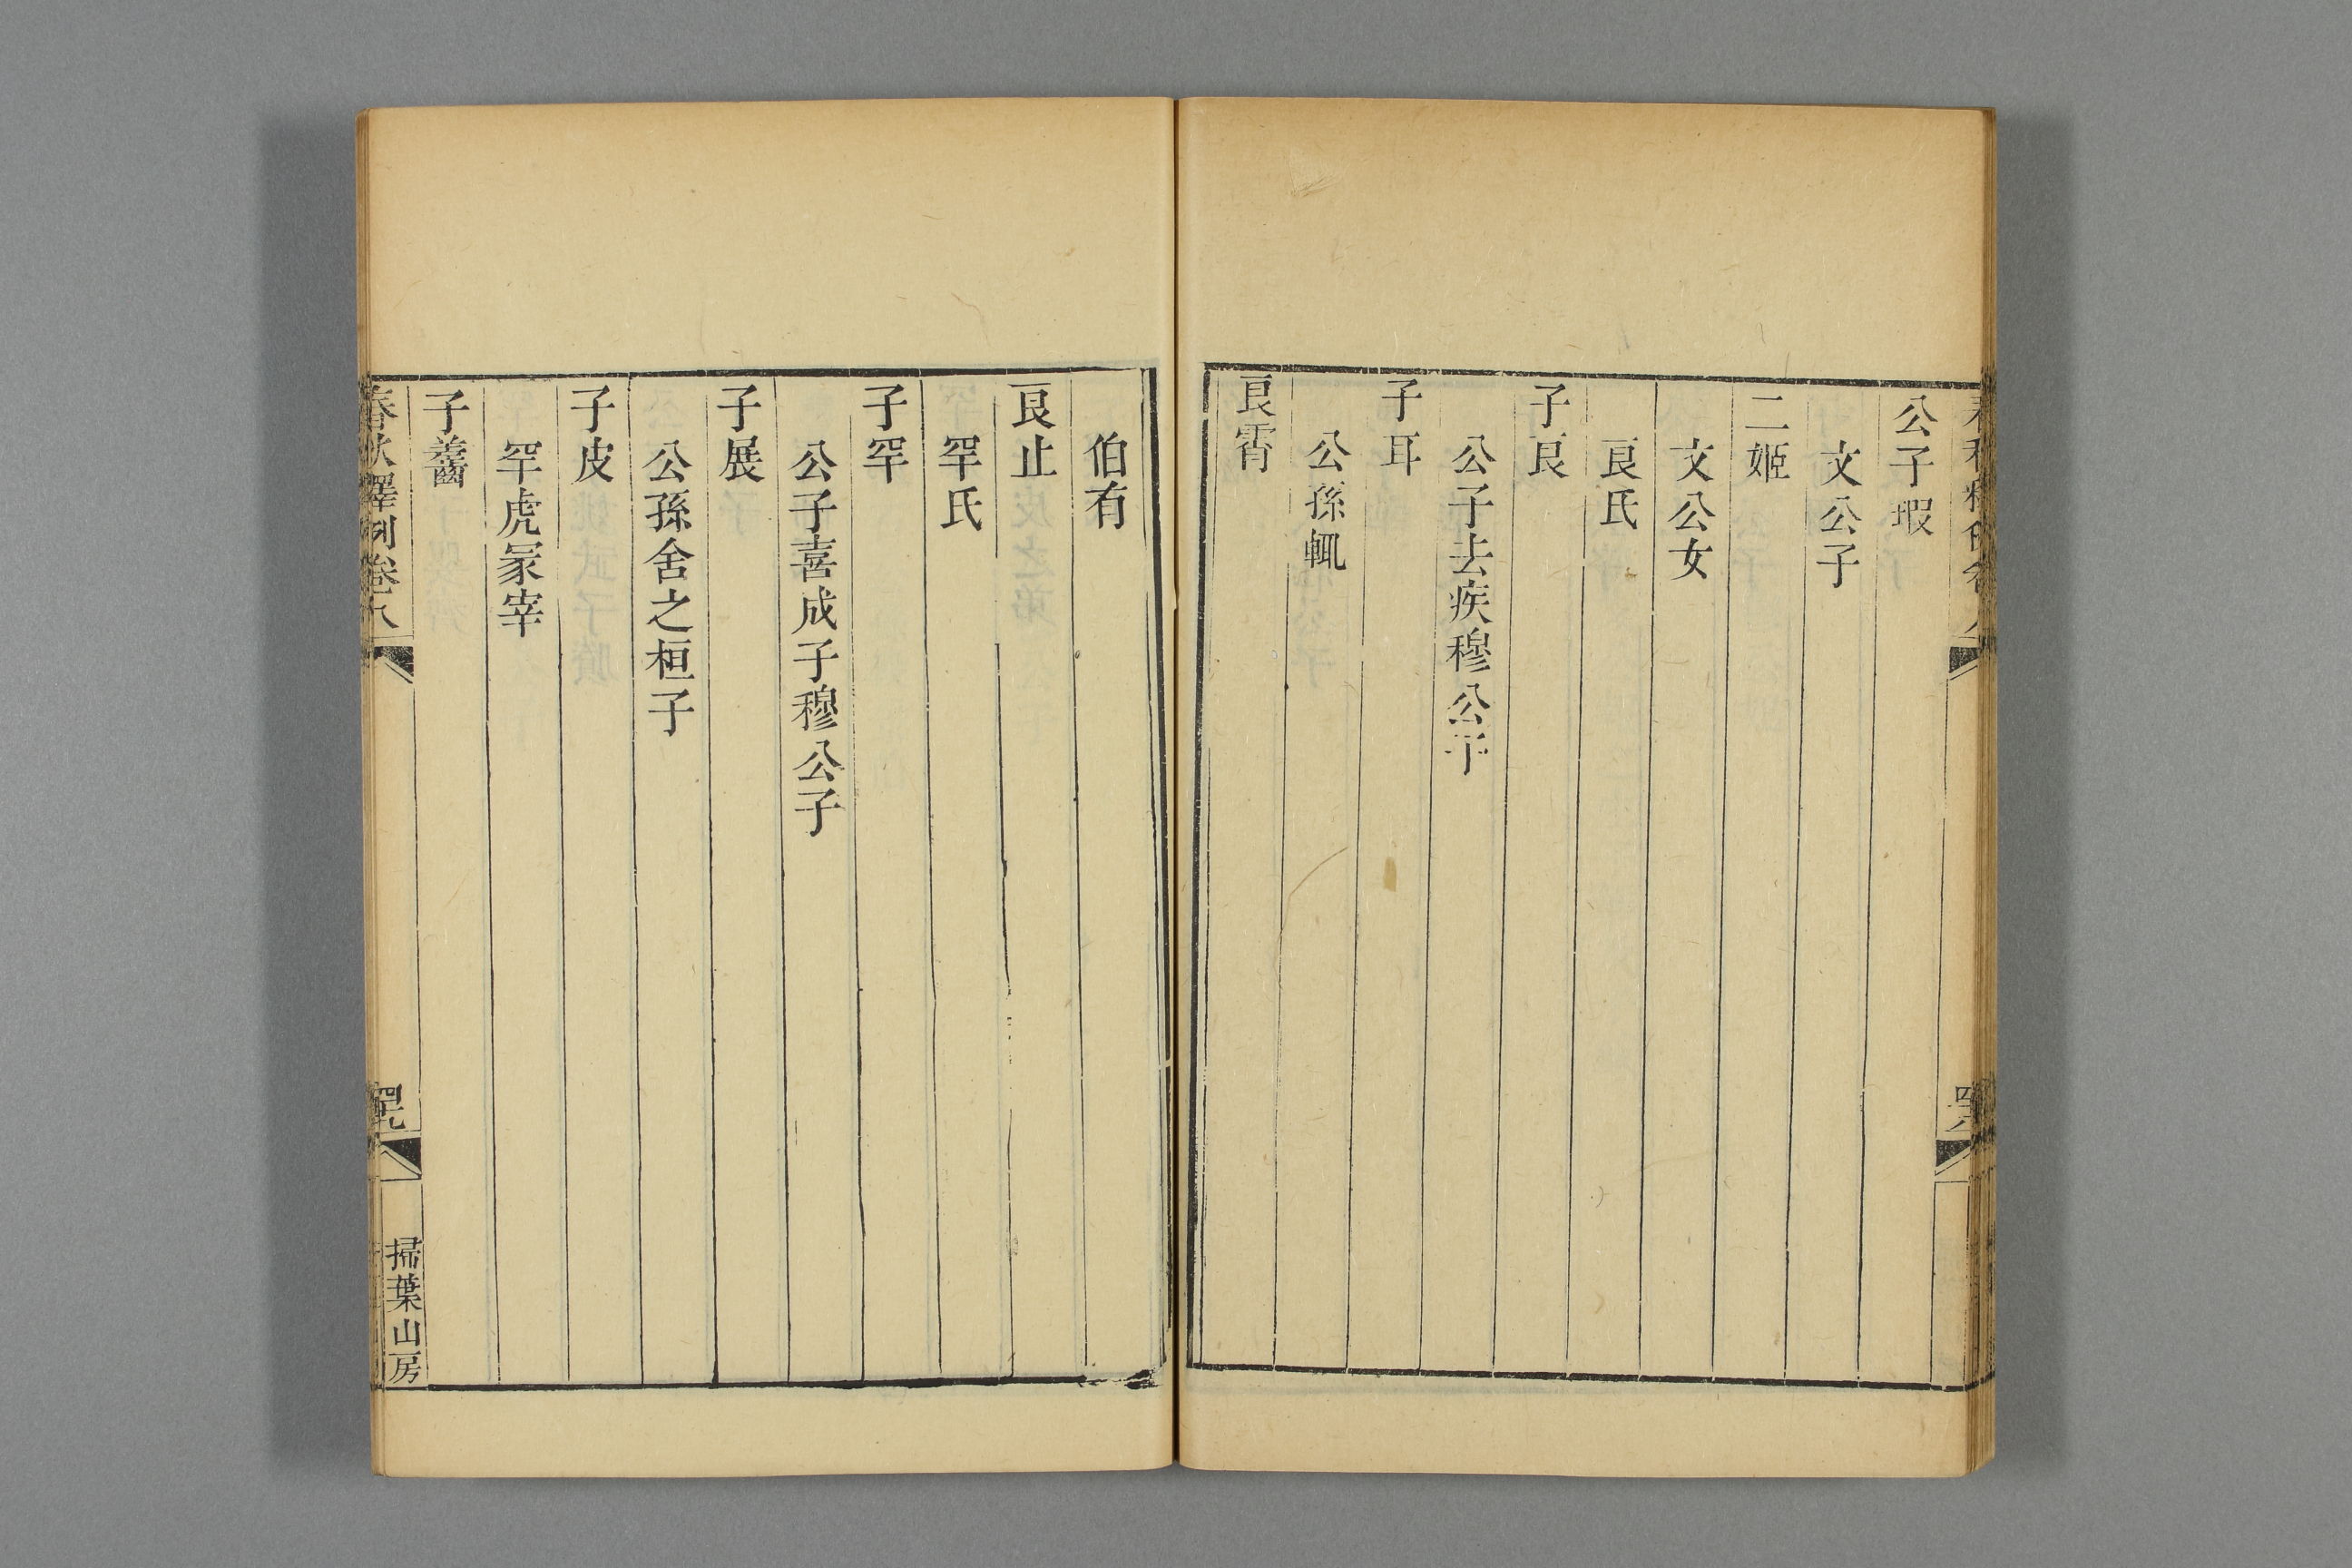 公子瑕
文公子
二姬
文公女
良氏
子良
公子去疾穆公子
子耳
公孫輒
良霄
伯有
良止
罕氏
子罕
公子喜成子穆公子
子展
公孫舍之桓子
子皮
罕虎冢宰
子齹
春秋釋例卷八
掃葉山房